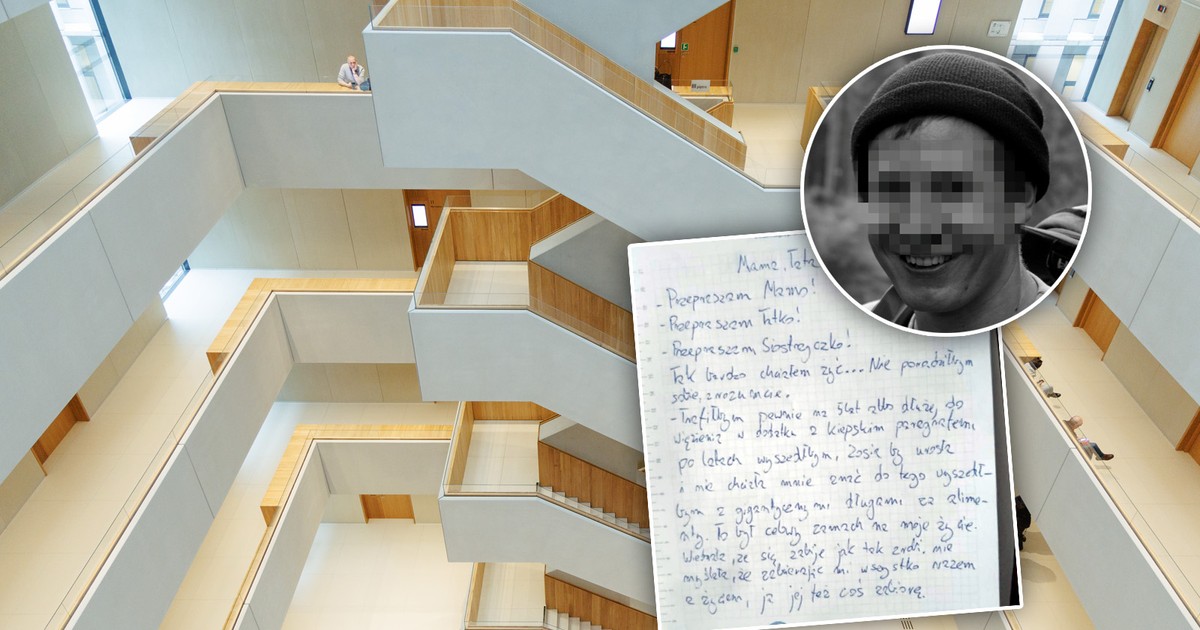 Mamo, Tato
- Przepraszam Mamo!
- Przepraszam Tatko!
- Przepraszam Siostrzyczko!
Tak bardzo chciałem żyć... Nie poradziłbym
sobie, zrozumcie.
- Trafiłbym pewnie na 5 lat albo dłużej do
więzienia w dodatku z kiepskim paragrafem,
po latach wyszedłbym, Zosia by urosła
i nie chciała mnie znać do tego wyszedł-
bym z gigantycznymi długami za alime-
nty. To był celowy zamach na moje życie.
Wiedziała, że się zabije jak tak zrobi, nie
myślała, że zabierając mi wszystko razem
z życiem, ja jej też coś zabiorę.